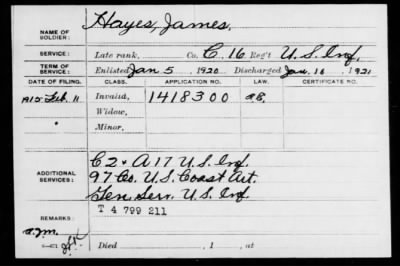 NAME OF SOLDIER: Hayes, James.
SERVICE: Late rank, Co. C. 16 Reg't U.S. Inf.
TERM OF SERVICE: Enlisted Jan 5, 1920 Discharged Jan. 16, 1921
DATE OF FILING. CLASS. APPLICATION NO. LAW. CERTIFICATE NO.
1915 Feb. 11 Invalid, 1418300
Widow,
Minor,
ADDITIONAL SERVICES: C 2 & A 17 U.S. Inf.
97 Co. U.S. Coast Art.
Gen. Serv. U.S. Inf.
REMARKS: T 4 799 211
Died , 1 , at